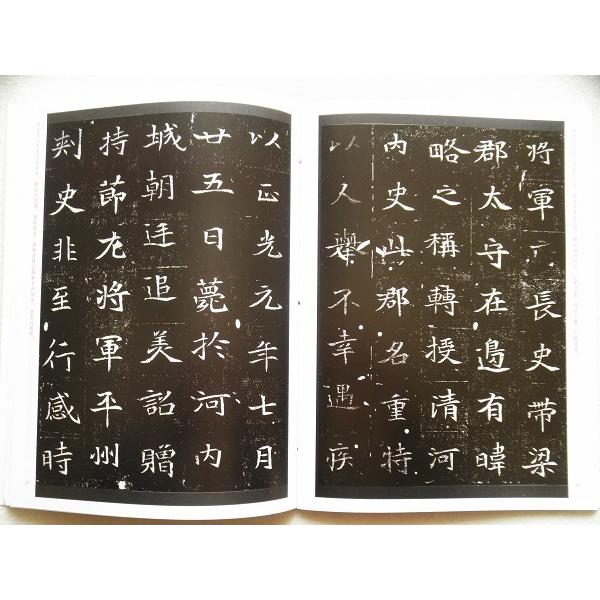 將軍長史帶梁
郡太守在邊有暐
略之稱轉授清河
內史此郡名重特
以人舉不幸遇疾
以正光元年七月
廿五日薨於河內
城朝廷追美詔贈
持節左將軍平州
刺史非至行感時